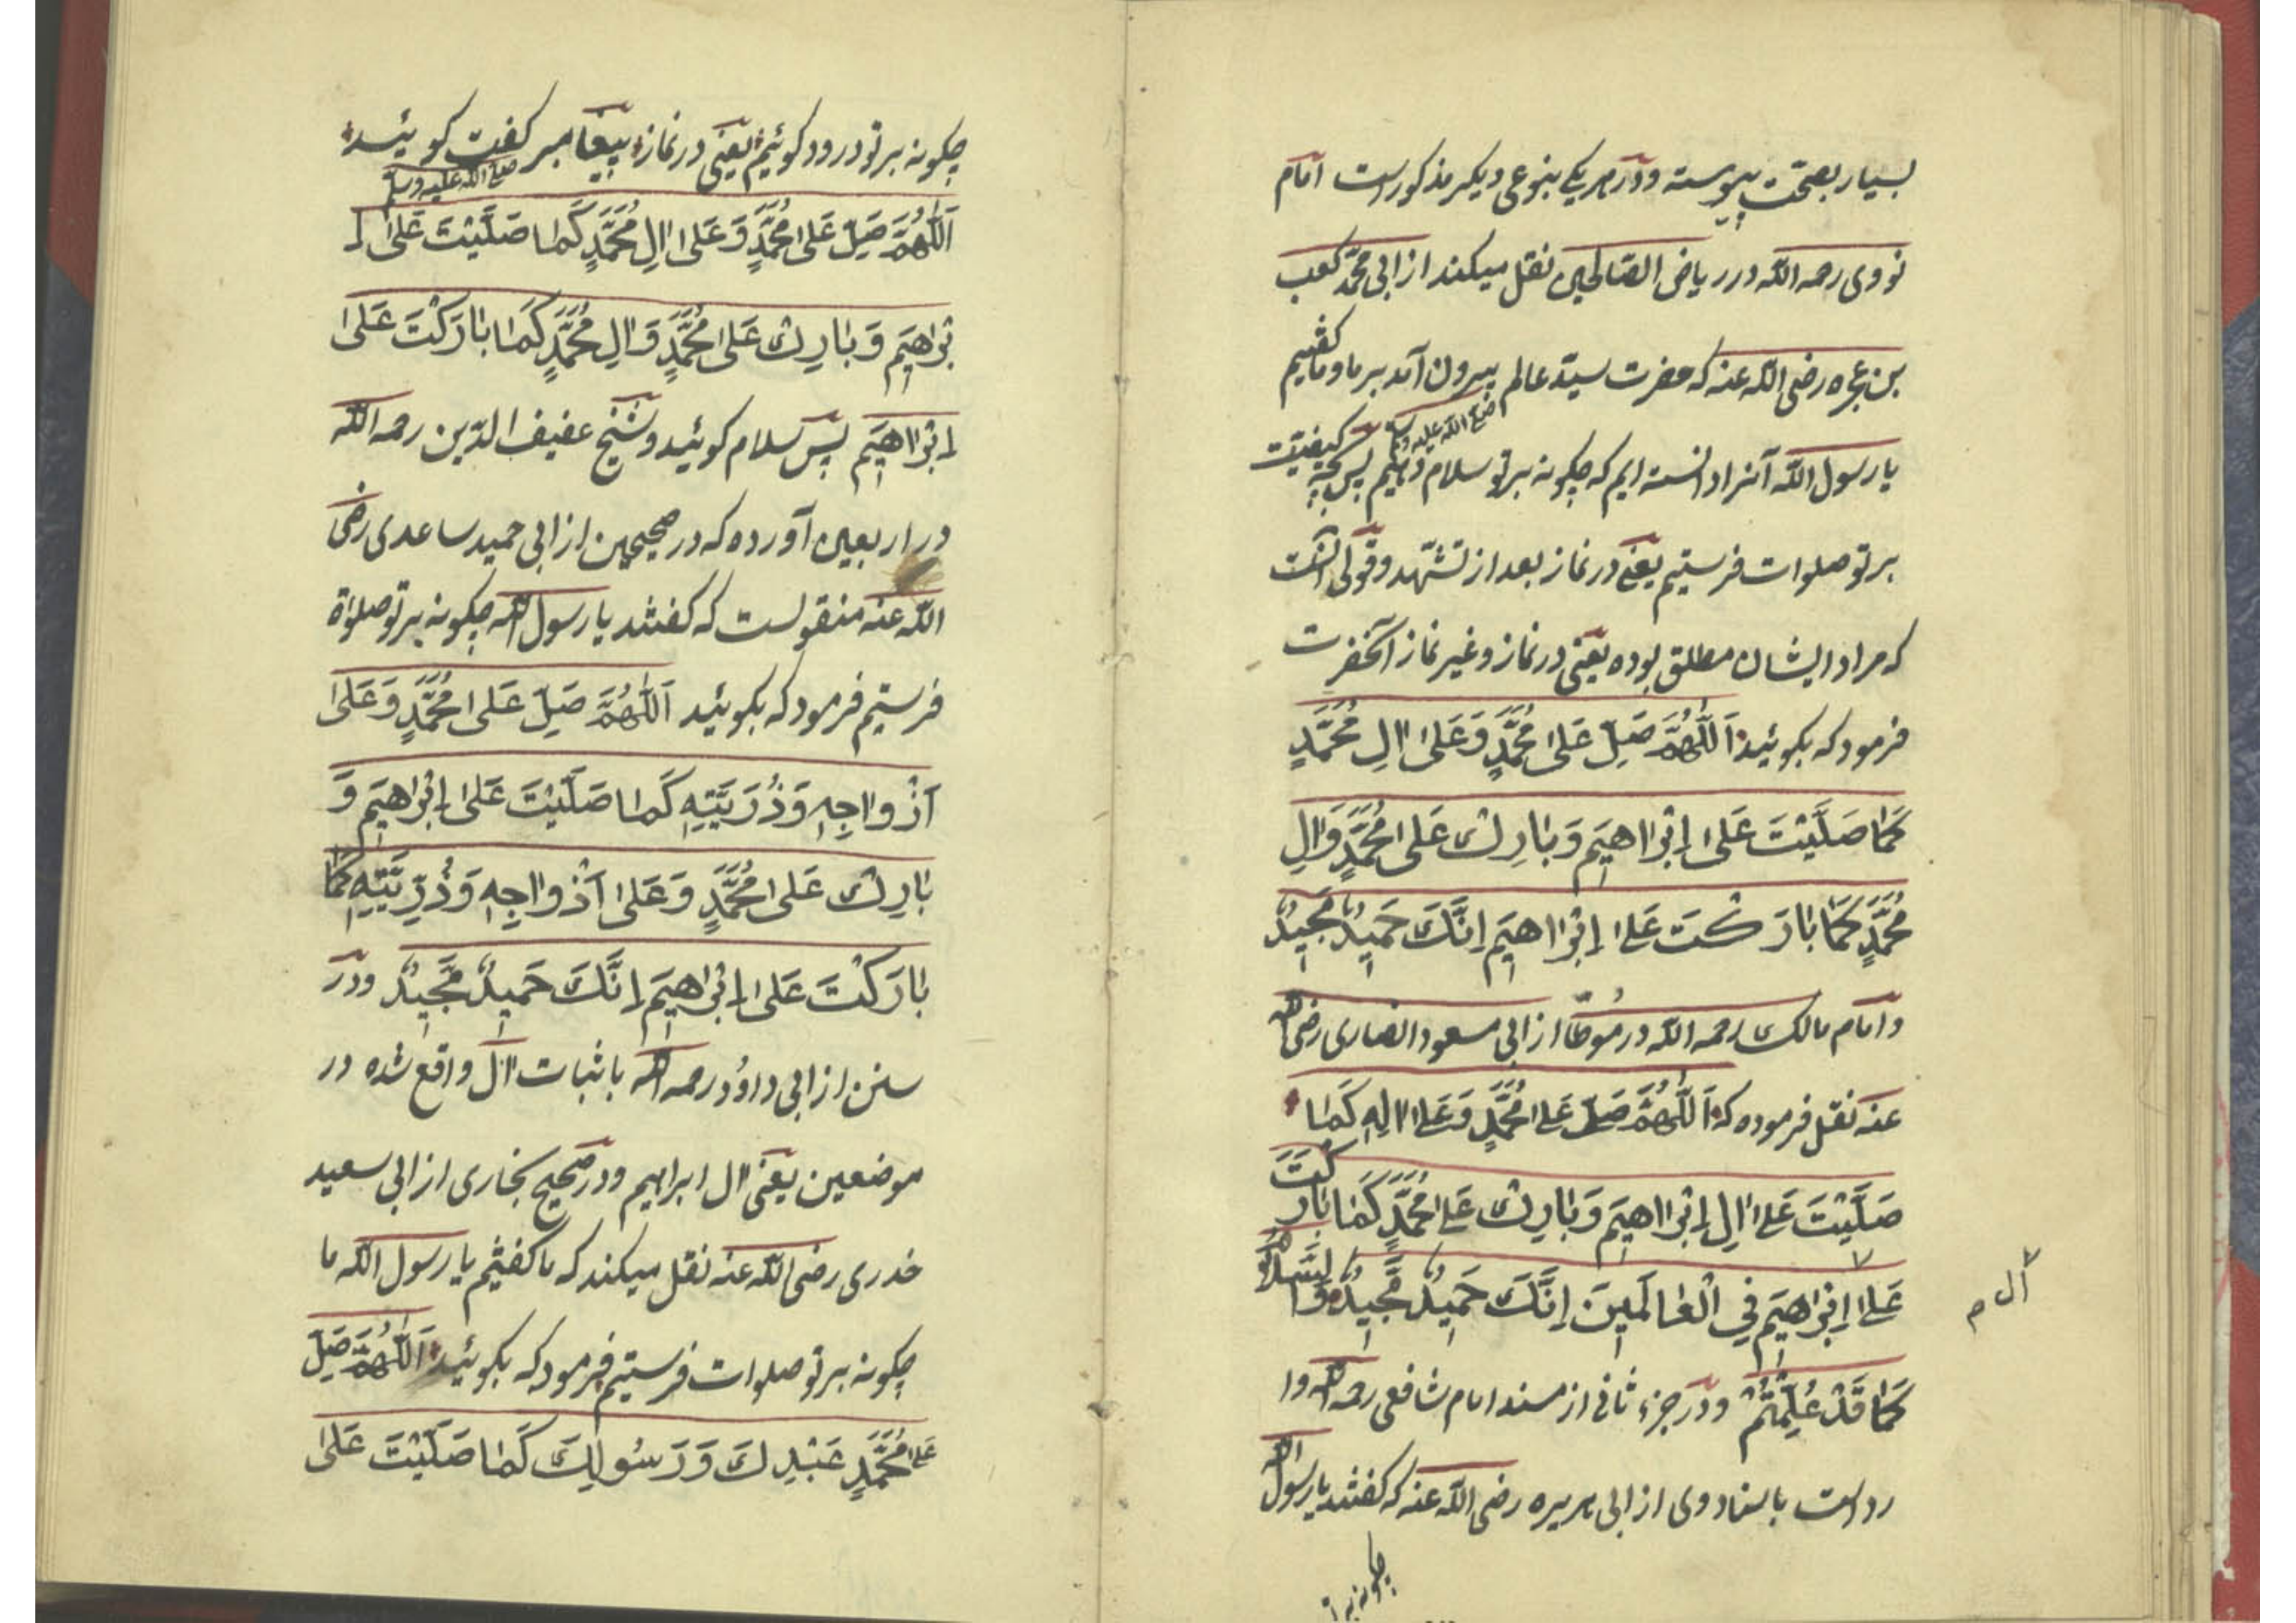 بسیار بصحّت پیوسته ودر هر یکی بنوعی دیکر مذکور است امّام
نووی رحمه اللّه در ریاض الصّالحین نقل میکند از ابی محمّد کعب
بن عجره رضی اللّه عنه که حضرت سیّد عالم صلی اللّه علیه وسلم بیرون آمد بر ما وما کفتیم
یا رسول اللّه آنرا دانسته ایم که چکونه بر تو سلام دهیم پس بچه کیفیّت
بر تو صلوات فرستیم یعنی در نماز بعد از تشهّد وقولی آنست
که مراد ایشان مطلق بوده یعنی در نماز وغیر نماز آنحضرت
فرمود که بکوئید اَللّٰهُمَّ صَلِّ عَلیٰ مُحَمَّدٍ وَعَلیٰ اٰلِ مُحَمَّدٍ
کَمٰا صَلَّیْتَ عَلیٰ اِبْرٰاهِیَم وَبٰارِكْ عَلیٰ مُحَمَّدٍ وَاٰلِ
مُحَمَّدٍ کَمٰا بٰارَکْتَ عَلیٰ اِبْرٰاهِیَم اِنَّكَ حَمیِدٌ مَجیِدٌ
وامّام مالك رحمه اللّه در موُطّا از ابی مسعود انصاری رضی اللّه
عنه نقل فرموده که اَللّٰهُمَّ صَلِّ عَلیٰ مُحَمَّدٍ وَعَلیٰ اٰلِهِ کَمٰا
صَلَّیْتَ عَلیٰ اٰلِ اِبْرٰاهِیَم وَبٰارِكْ عَلیٰ مُحَمَّدٍ کَمٰا بٰارَکْتَ
عَلیٰ اِبْرٰاهِیَم فِي الْعٰالَمیِنَ اِنَّكَ حَمیِدٌ مَجیِدٌ وَالسَّلاٰمُ
آل م
کَمٰا قَدْ عُلِّمْتُمْ ودر جزء ثانی از مسند امام شافعی رحمه اللّه وا
رد است باسناد وی از ابی هریره رضی اللّه عنه که کفتند یا رسول اللّه
چکونه بر تو
چکونه بر تو درود کوئیم یعنی در نماز پیغامبر صلی اللّه علیه وسلم کفت کوئید
اَللّٰهُمَّ صَلِّ عَلیٰ مُحَمَّدٍ وَعَلیٰ اٰلِ مُحَمَّدٍ کَمٰا صَلَّیْتَ عَلیٰ اِ
بْرٰاهیَم وَبٰارِكْ عَلیٰ مُحَمَّدٍ وَاٰلِ مُحَمَّدٍ کَمٰا بٰارَکْتَ عَلیٰ
اِبْرٰاهیَم پس سلام کوئید وشیخ عفیف الدّین رحمه اللّه
در اربعین آورده که در صحیحین از ابی حمید ساعدی رضی
اللّه عنه منقولست که کفتند یا رسول اللّه چکونه بر تو صلوٰة
فرستیم فرمود که بکوئید اَللّٰهُمَّ صَلِّ عَلیٰ مُحَمَّدٍ وَعَلیٰ
اَزْوٰاجِهِ وَذُرِّیَّتِهِ کَمٰا صَلَّیْتَ عَلیٰ اِبْرٰاهیَم وَ
بٰارِكْ عَلیٰ مُحَمَّدٍ وَعَلیٰ اَزْوٰاجِهِ وَذُرِّیَّتِهِ کَمٰا
بٰارَکْتَ عَلیٰ اِبْرٰاهیَم اِنَّكَ حَمیِدٌ مَجیِدٌ ودر
سنن از ابی داوُد رحمه اللّه باثبات اٰل واقع شده در
موضعین یعنی اٰل ابراهیم ودر صحیح بخاری از ابی سعید
خدری رضی اللّه عنه نقل میکند که ما کفتیم یا رسول اللّه ما
چکونه بر تو صلوات فرستیم فرمود که بکوئید اَللّٰهُمَّ صَلِّ
عَلیٰ مُحَمَّدٍ عَبْدِكَ وَرَسُولِكَ کَمٰا صَلَّیْتَ عَلیٰ